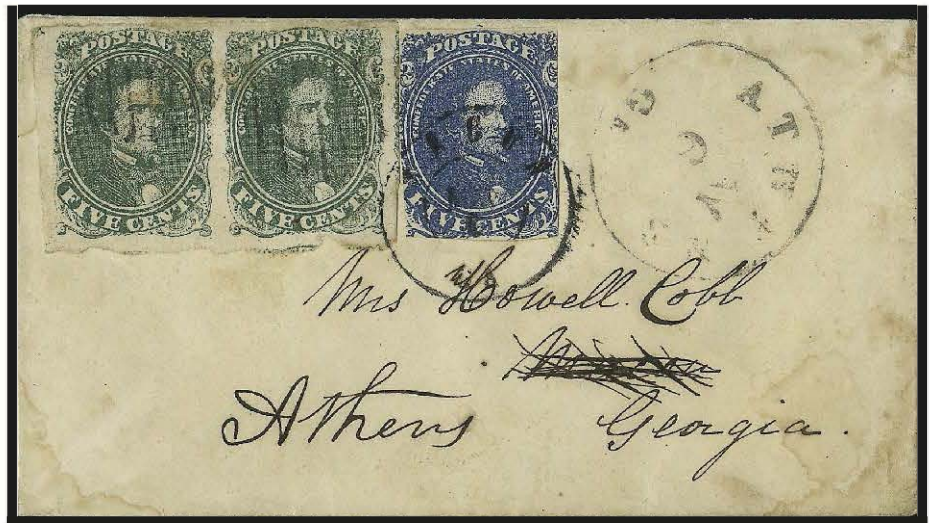 POSTAGE
CONFEDERATE STATES OF AMERICA
FIVE CENTS
POSTAGE
CONFEDERATE STATES OF AMERICA
FIVE CENTS
POSTAGE
CONFEDERATE STATES OF AMERICA
FIVE CENTS
ATH
Mrs Howell Cobb
Athens Georgia.